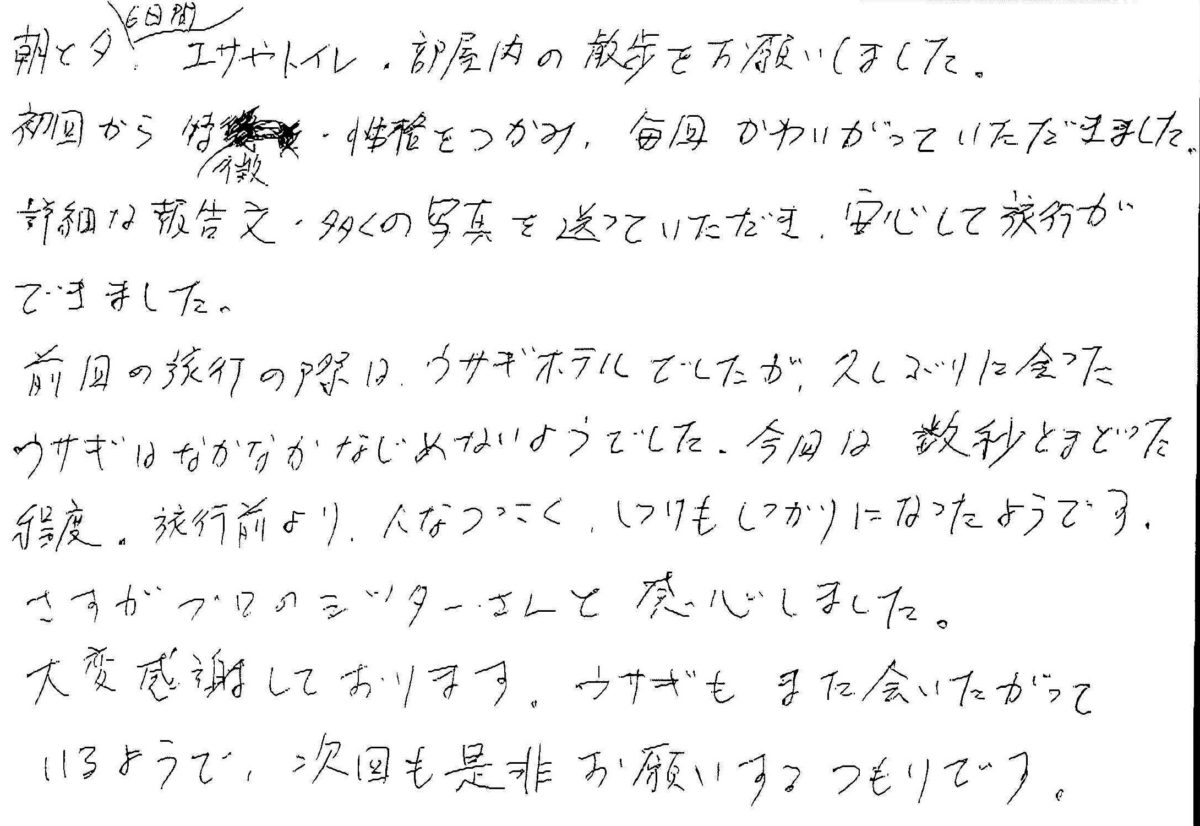 朝と夕、6日間 エサやトイレ・部屋内の散歩をお願いしました。
初回から 特徴・性格をつかみ、毎回 かわいがっていただきました。
詳細な報告文・多くの写真を送っていただき、安心して旅行が
できました。
前回の旅行の際は、ウサギホテルでしたが、久しぶりに会った
ウサギはなかなかなじめないようでした。今回は 数秒とまどった
程度。旅行前より、人なつこく、しつけもしっかりになったようです。
さすがプロのシッターさんと 感心しました。
大変感謝しております。ウサギも また会いたがって
いるようで、次回も是非お願いするつもりです。